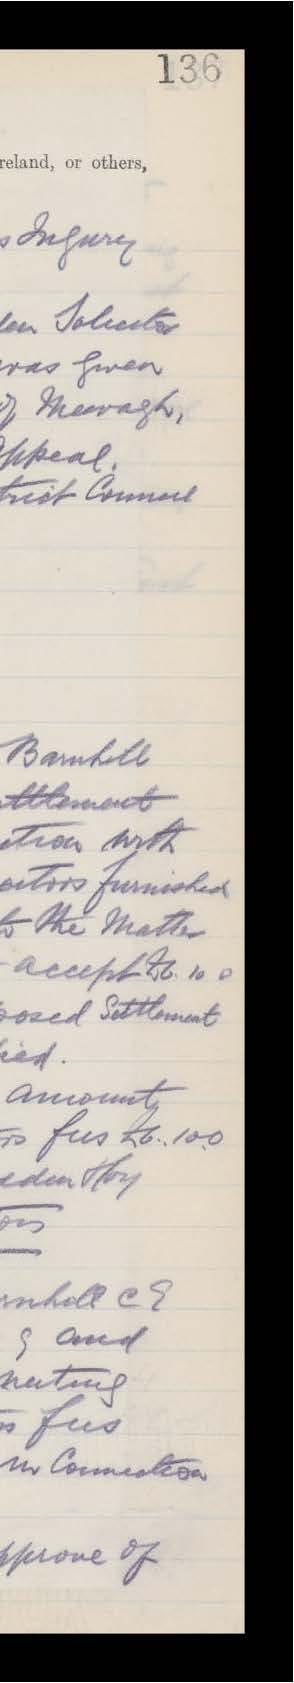 136
reland, or others,
s Injury
den Solicitor
was given
of Meevagh,
Appeal.
trict Council
Barnhill
ettlement
ction with
icitors furnished
to the Matter
accept £6.10.0
posed Settlement
fied.
amount
rs fees £6.10.0
adden
ors
rnhill C E
g and
meeting
rs fees
in Connection
pprove of